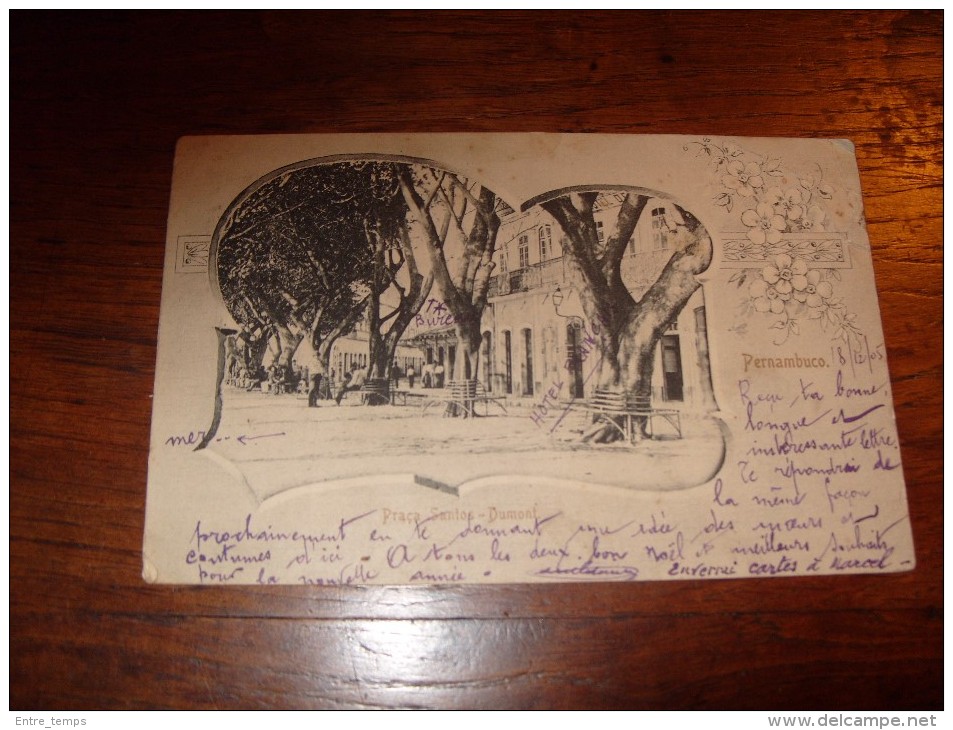 Pernambuco. 18/12/05
Reçu ta bonne,
longue et
intéressante lettre.
Te répondrai de
la même façon
prochainement en te donnant une idée des mœurs et
coutumes d'ici - A tous les deux bon Noël et meilleurs souhaits
pour la nouvelle année. Enverrai cartes à Marcel -
Praça Santos-Dumont
mer..
HOTEL
Entre_temps
delcampe.net